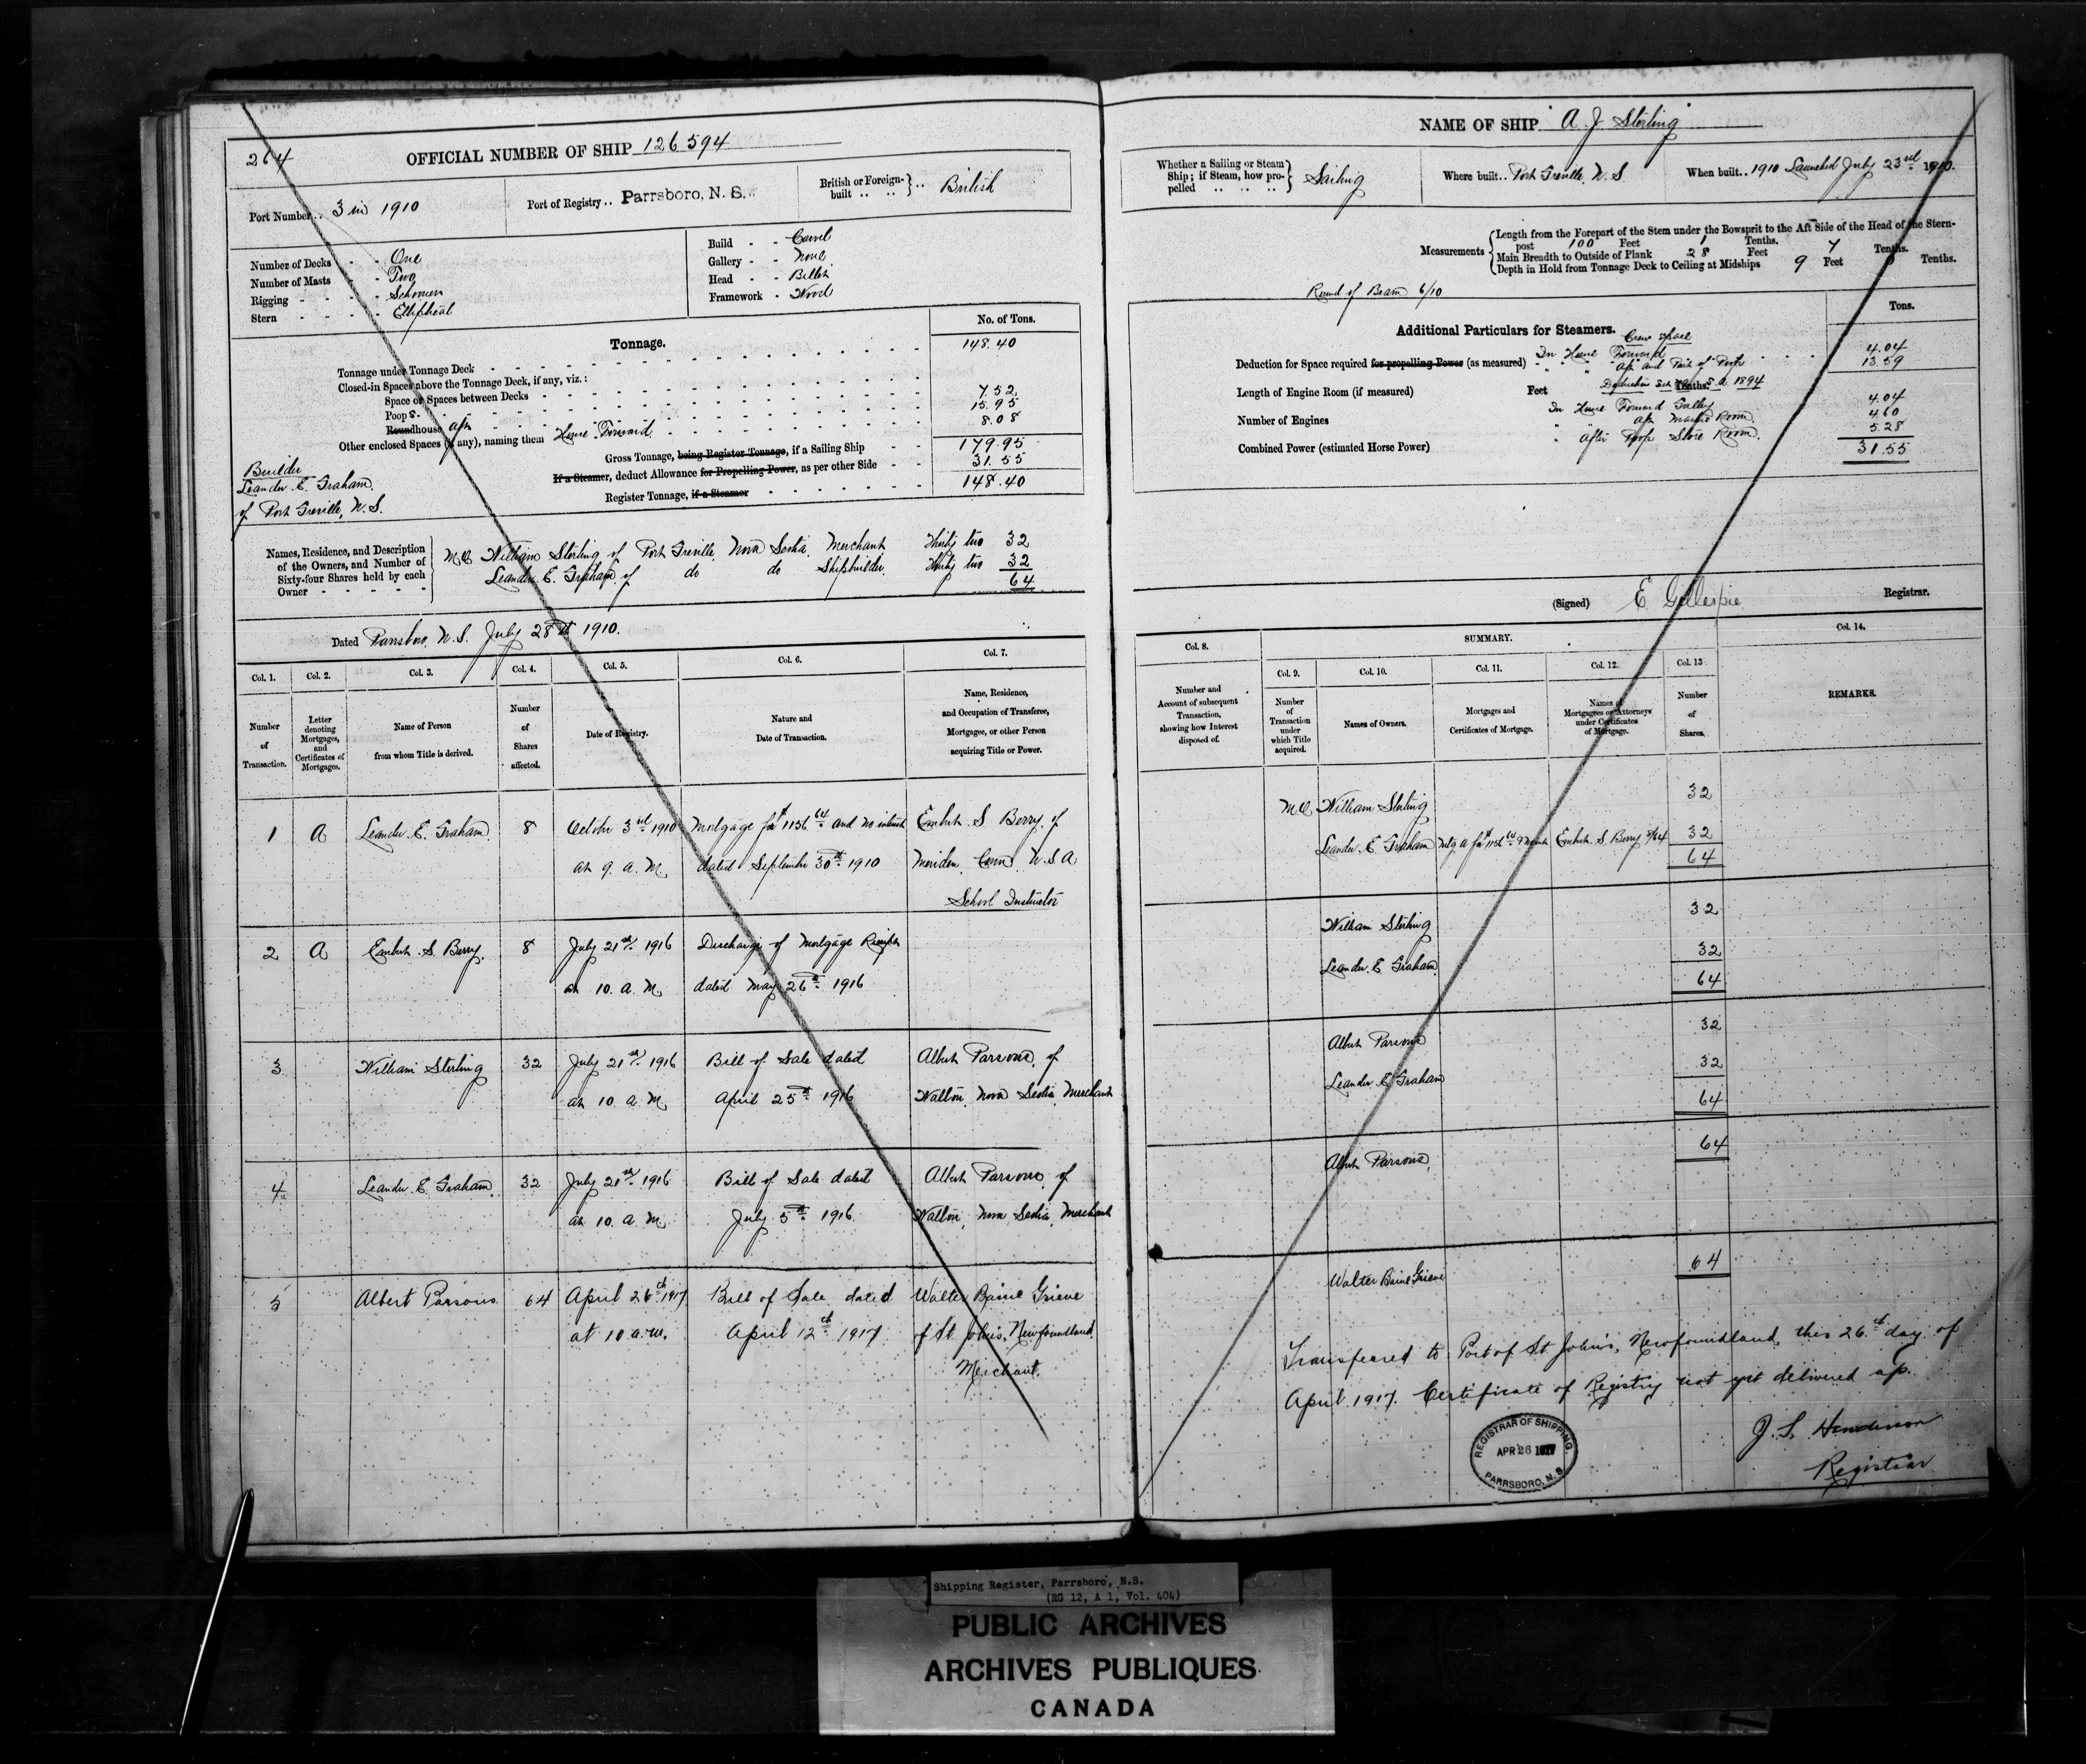 264
OFFICIAL NUMBER OF SHIP 126594
Port Number .. 3 in 1910
Port of Registry .. Parrsboro, N. S.
British or Foreign-built .. British
Number of Decks - - One
Number of Masts - - Two
Rigging - - - - Schooner
Stern - - - - Elliptical
Build - - Carvel
Gallery - - None
Head - - Billet
Framework - Wood
Tonnage.
No. of Tons.
Tonnage under Tonnage Deck 148.40
Closed-in Spaces above the Tonnage Deck, if any, viz.:
Space or Spaces between Decks
Poop 7.52
Roundhouse aft 15.95
Other enclosed Spaces (if any), naming them House Forward 8.08
Gross Tonnage, being Register Tonnage, if a Sailing Ship 179.95
If a Steamer, deduct Allowance for Propelling Power, as per other Side 31.55
Register Tonnage, if a Steamer 148.40
Builder
Leander E. Graham
of Port Greville, N.S.
Names, Residence, and Description of the Owners, and Number of Sixty-four Shares held by each Owner
M.O. William Sterling of Port Greville, Nova Scotia, Merchant Thirty two 32
Leander E. Graham of do do Shipbuilder Thirty two 32
64
Dated Parrsboro, N.S. July 28th 1910.
Col. 1. Col. 2. Col. 3. Col. 4. Col. 5. Col. 6. Col. 7.
Number of Transaction.
Letter denoting Mortgages, and Certificates of Mortgages.
Name of Person from whom Title is derived.
Number of Shares affected.
Date of Registry.
Nature and Date of Transaction.
Name, Residence, and Occupation of Transferee, Mortgagee, or other Person acquiring Title or Power.
1 A Leander E. Graham 8 October 3rd 1910 Mortgage for $1136 and no interest S. Berry of
at 9. a. M. dated September 30th 1910 Meriden, Conn. U.S.A
School Instructor
2 A S. Berry 8 July 21st 1916 Discharge of Mortgage Receipt
at 10. a. M. dated May 26th 1916
3 William Sterling 32 July 21st 1916 Bill of Sale dated Albert Parsons, of
at 10. a. M. April 25th 1916 Walton, Nova Scotia, Merchant
4 Leander E. Graham 32 July 21st 1916 Bill of Sale dated Albert Parsons, of
at 10. a. M. July 5th 1916 Walton, Nova Scotia, Merchant
5 Albert Parsons 64 April 26th 1917 Bill of Sale dated Walter Baine Grieve
at 10 a.m. April 12th 1917 of St. John's, Newfoundland
Merchant.
NAME OF SHIP A. J. Sterling
Whether a Sailing or Steam Ship; if Steam, how propelled .. Sailing
Where built .. Port Greville, N. S
When built .. 1910 Launched July 23rd 1910.
Measurements
Length from the Forepart of the Stem under the Bowsprit to the Aft Side of the Head of the Stern-
post 100 Feet 1 Tenths.
Main Breadth to Outside of Plank 28 Feet 7 Tenths.
Depth in Hold from Tonnage Deck to Ceiling at Midships 9 Feet Tenths.
Round of Beam 6/10
Additional Particulars for Steamers.
Tons.
Crew space
Deduction for Space required for propelling Power (as measured) In House Forward 4.04
" " Aft and Part of Poop 13.59
Length of Engine Room (if measured) Feet Tenths.
1894
In House Forward Galley 4.04
Number of Engines
" aft Master Room 4.60
" after Poop Store Room 5.28
Combined Power (estimated Horse Power) 31.55
(Signed) E Gillespie Registrar.
Col. 8. SUMMARY. Col. 14.
Col. 9. Col. 10. Col. 11. Col. 12. Col. 13
Number and Account of subsequent Transaction, showing how Interest disposed of.
Number of Transaction under which Title acquired.
Names of Owners.
Mortgages and Certificates of Mortgage.
Names of Mortgagees or Attorneys under Certificates of Mortgage.
Number of Shares.
REMARKS.
M.O. William Sterling 32
Leander E. Graham S. Berry 8/64 32
64
William Sterling 32
Leander E. Graham 32
64
Albert Parsons 32
Leander E Graham 32
64
Albert Parsons 64
Walter Baine Grieve 64
Transferred to Port of St John's, Newfoundland, this 26th day of
April 1917. Certificate of Registry not yet delivered up.
J. S. Henderson
Registrar
REGISTRAR OF SHIPPING,
APR 26 1917
PARRSBORO, N. S.
Shipping Register, Parrsboro, N.S.
(RG 12, A 1, Vol. 404)
PUBLIC ARCHIVES
ARCHIVES PUBLIQUES
CANADA